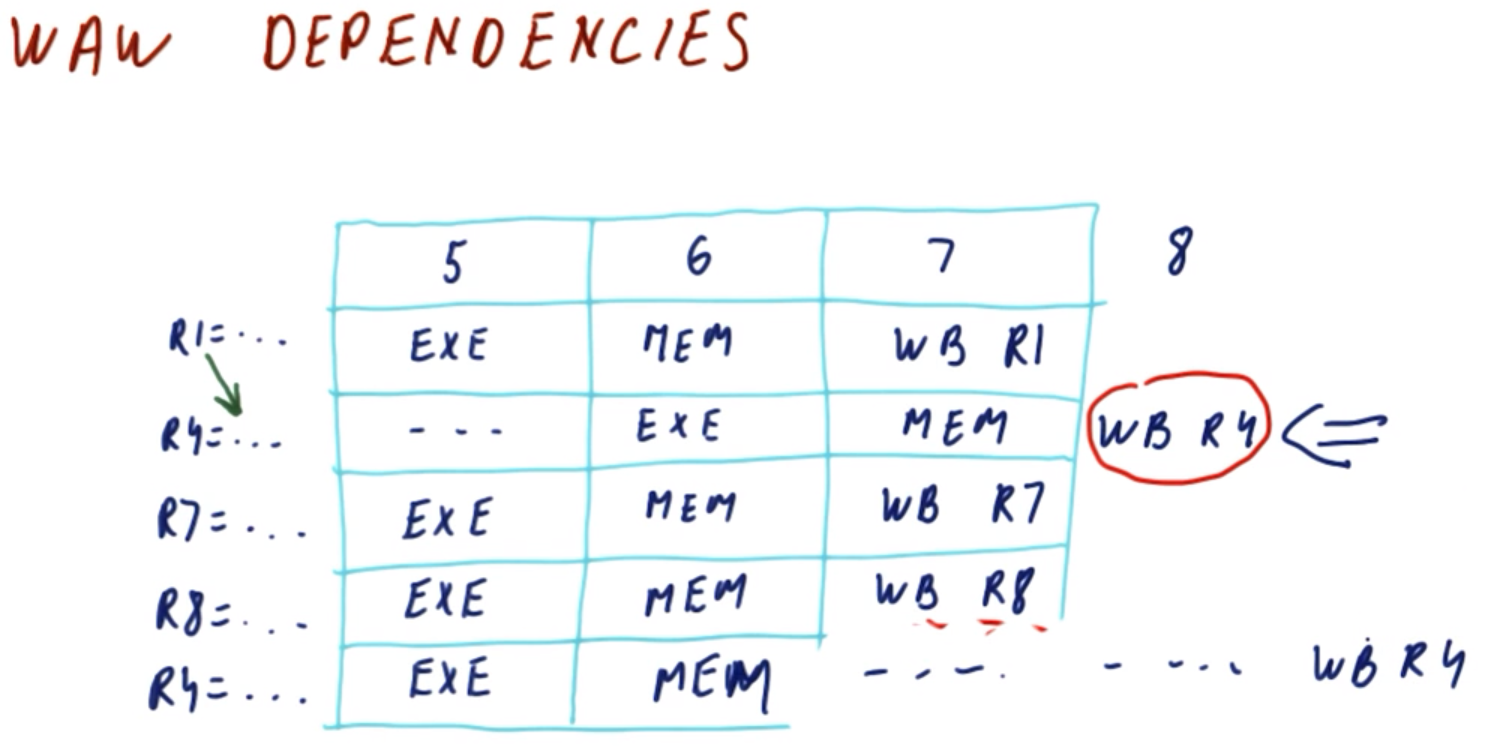 WAW DEPENDENCIES
5 6 7 8
R1=... EXE MEM WB R1
R4=... --- EXE MEM WB R4
R7=... EXE MEM WB R7
R8=... EXE MEM WB R8
R4=... EXE MEM ---. - -... WB R4